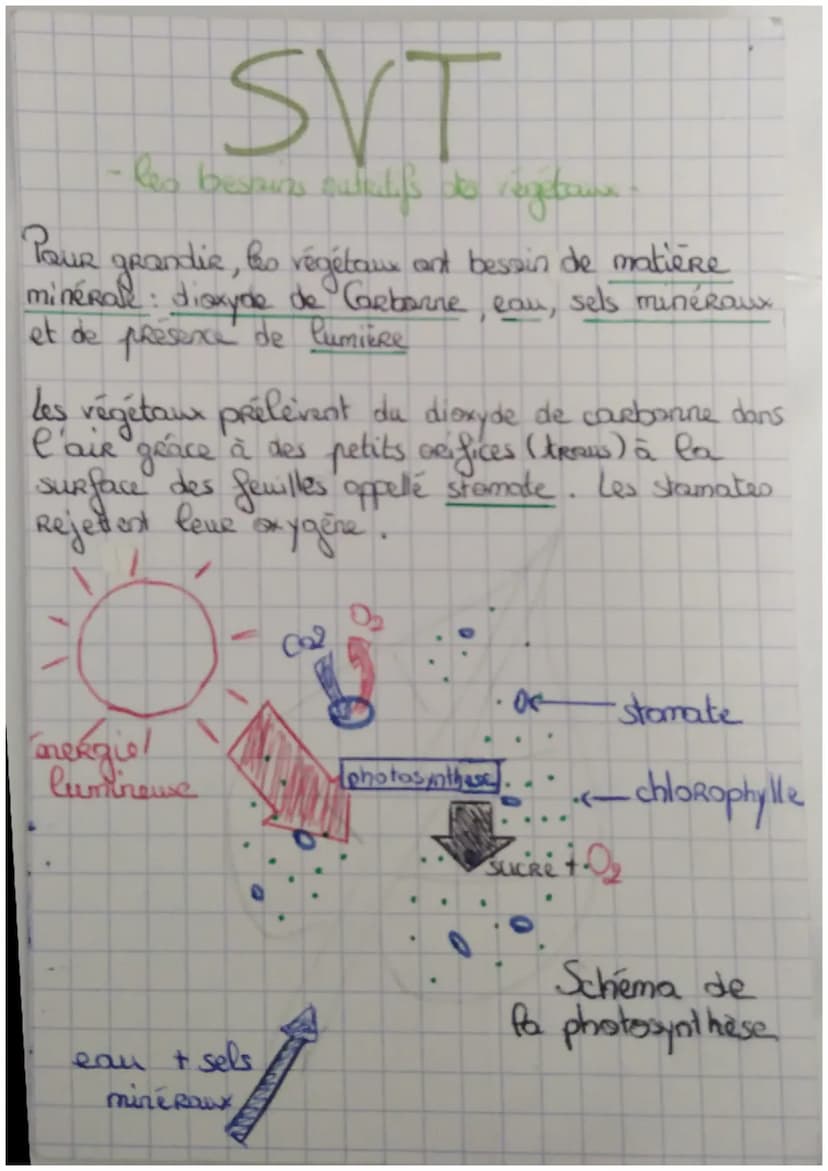 SVT
- les besoins nutritifs des végétaux -
Pour grandir, les végétaux ont besoin de matière
minérale : dioxyde de Carbonne, eau, sels minéraux
et de présence de lumière
Les végétaux prélèvent du dioxyde de carbonne dans
l'air grâce à des petits orifices (trous) à la
surface des feuilles appellé stomate. Les stomates
rejettent leur oxygène.
CO2
O2
stomate
énergie
lumineuse
photosynthèse
chlorophylle
sucre + O2
Schéma de
la photosynthèse
eau + sels
minéraux